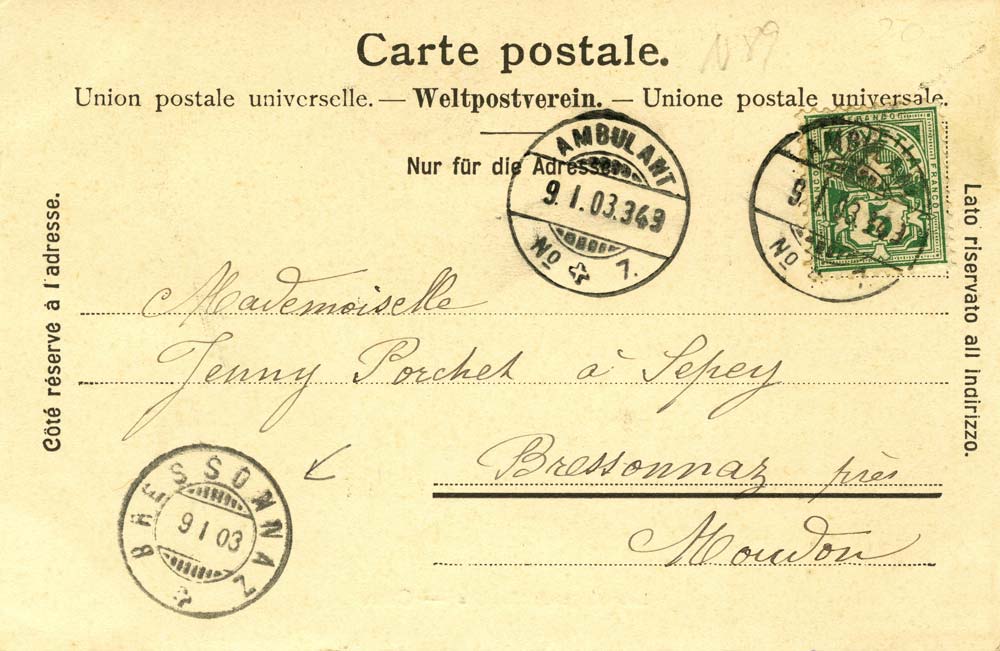 Carte postale.
N 89
Union postale universelle. — Weltpostverein. — Unione postale universale.
Nur für die Adresse.
AMBULANT
9. I. 03.349
No 7.
AMBULANT
9. I. 03.349
No 7
FRANCO
HELVETIA
FRANCO
5
Côté réservé à l'adresse.
Lato riservato all indirizzo.
Mademoiselle
Jenny Porchet à Sepey
Bressonnaz près
Moudon
BRESSONNAZ
9 I 03